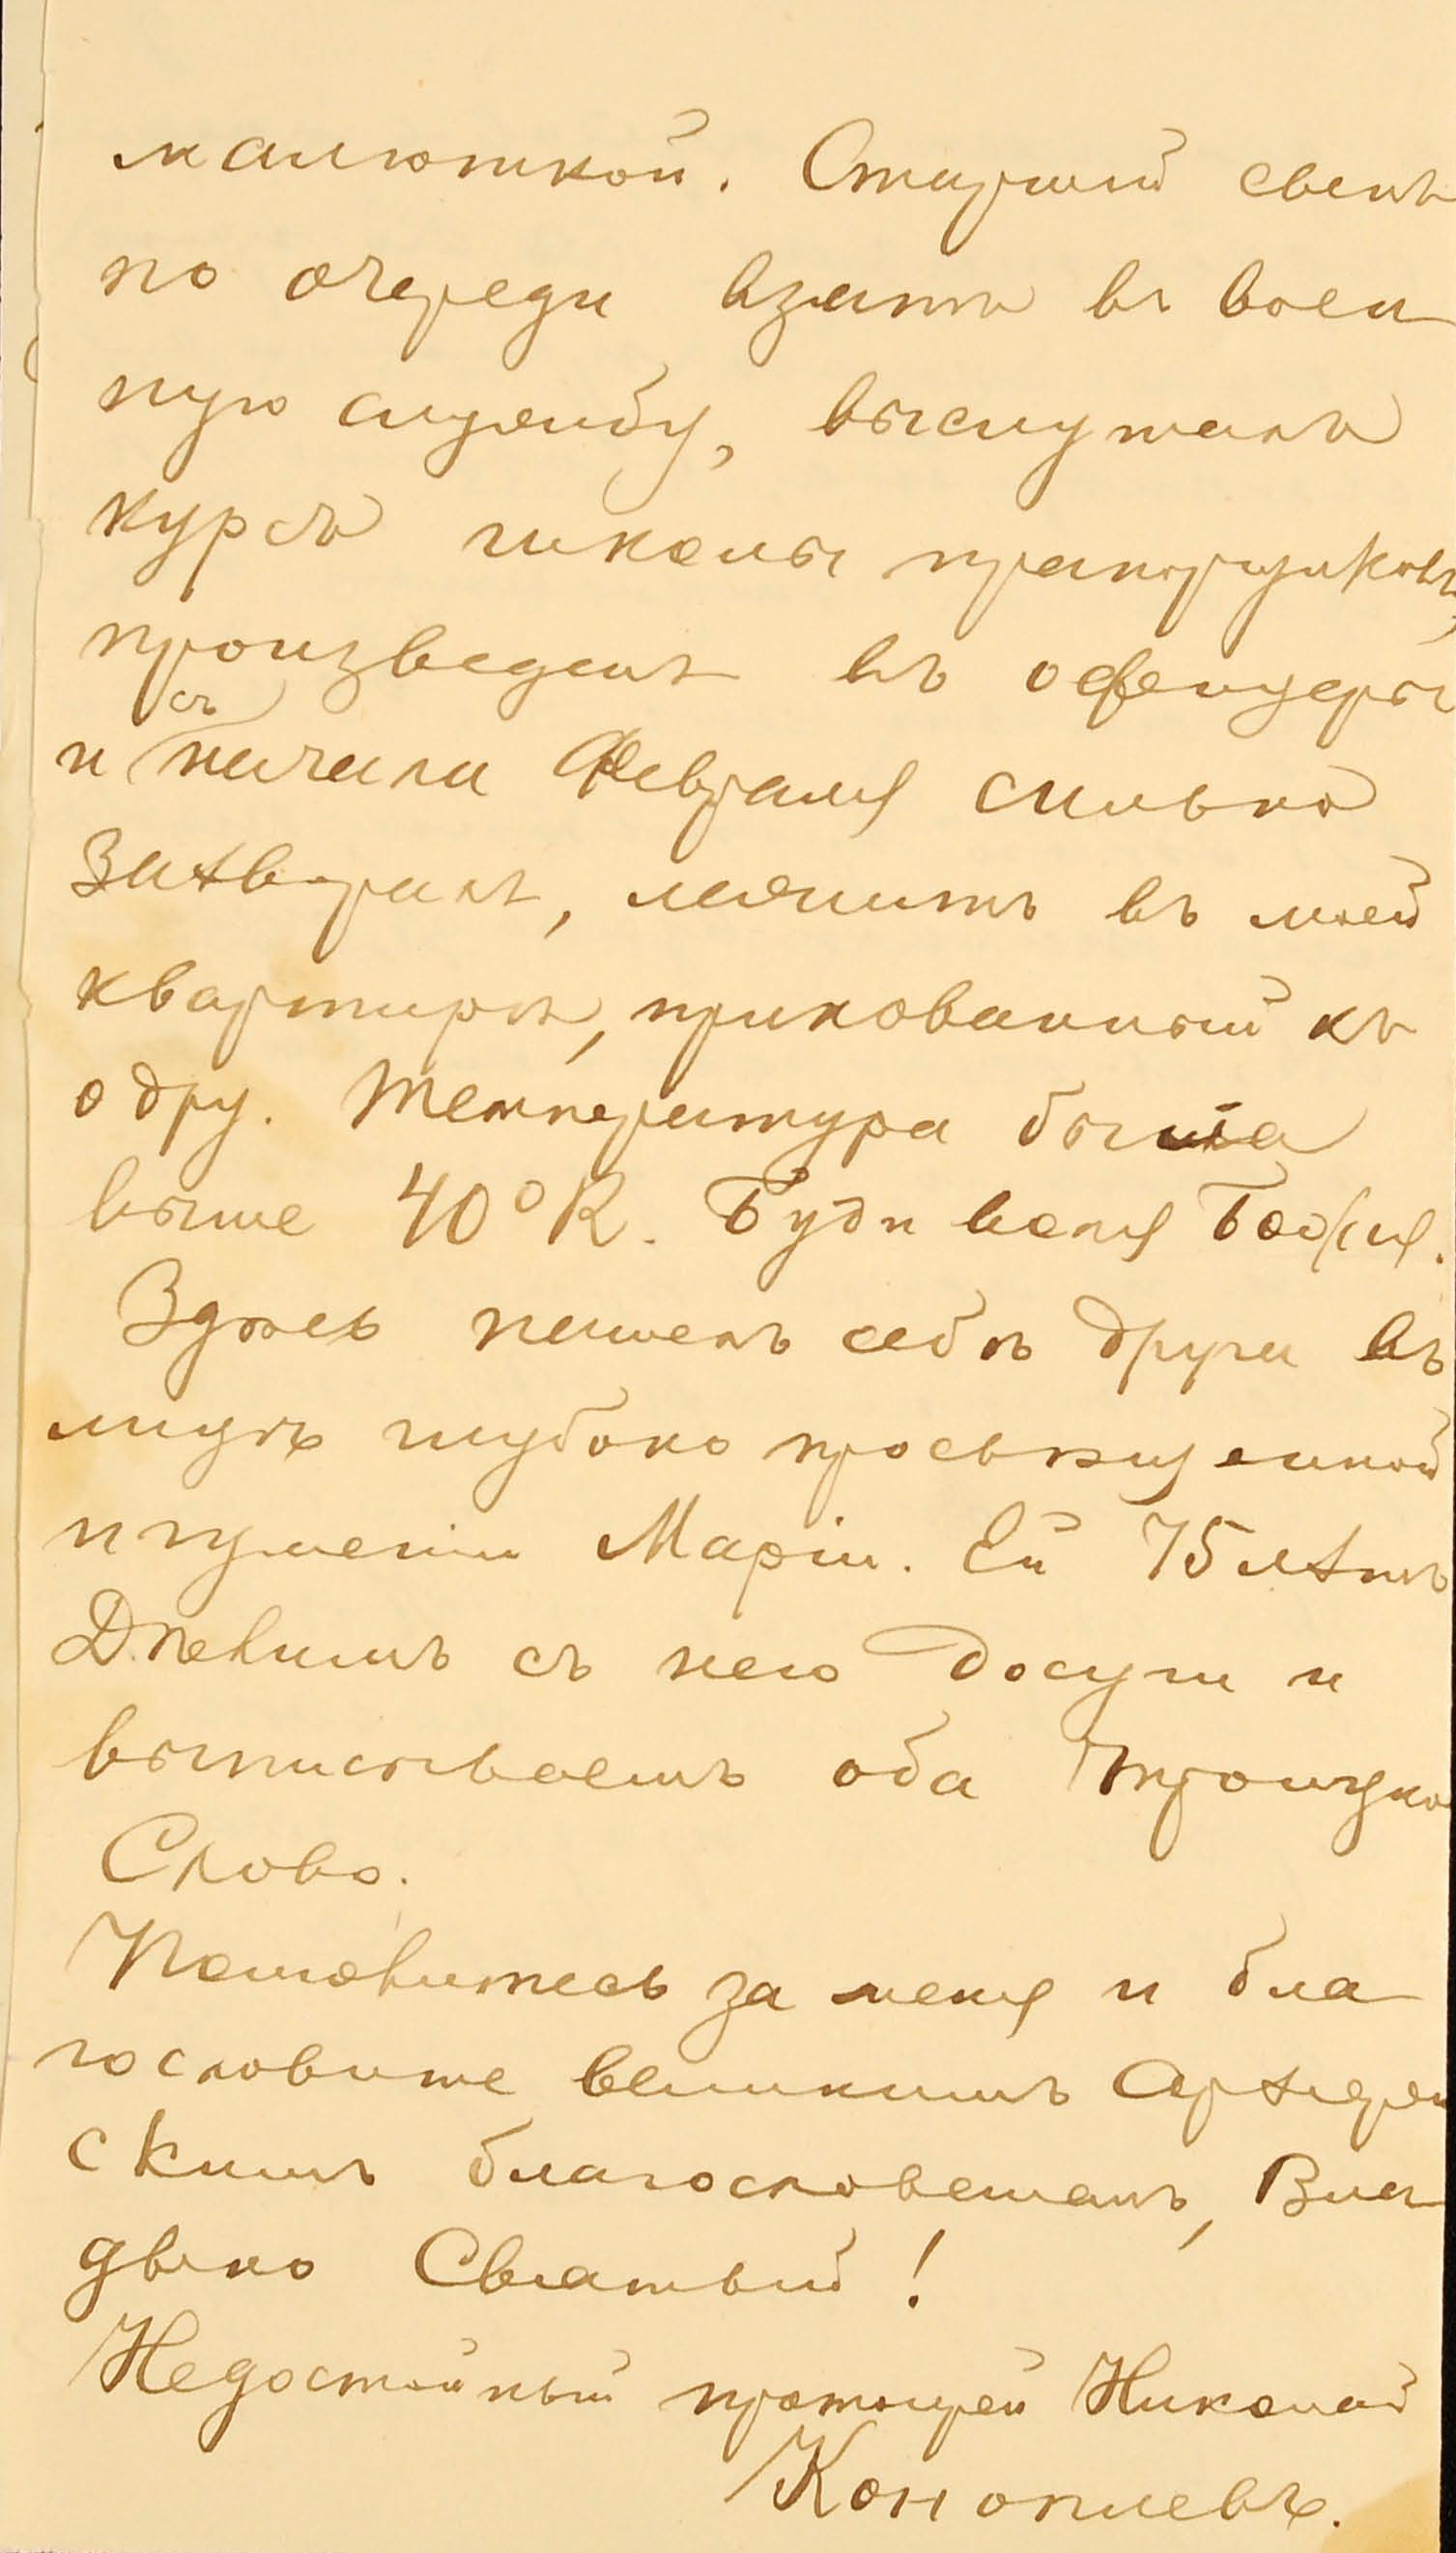 малюткой. Старшiй сынъ
по очереди взятъ въ воен
ную службу, выслушалъ
курсъ школы прапорщиковъ,
произведенъ въ офицеры
и съ начала Февраля сильно
захворалъ, лежитъ въ моей
квартирѣ, прикованный къ
одру. Температура была
выше 40° R. Буди воля Божiя.
Здѣсь нашелъ себѣ друга въ
лицѣ глубоко просвѣщенной
игуменiи Марiи. Ей 75 лѣтъ
Дѣлимъ съ нею досуги и
выписываемъ оба Троицкое
Слово.
Помолитесь за меня и бла
гословите великимъ Архiерей
скимъ благословенiемъ, Вла
дыко Святый!
Недостойный протоiерей Николай
Коноплевъ.